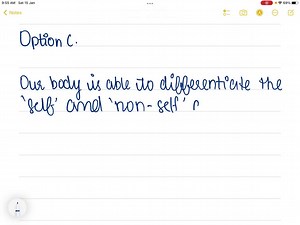 9:55 AM Sat 15 Jan
Notes
Option C.
Our body is able to differentiate the
'self' and 'non-self'